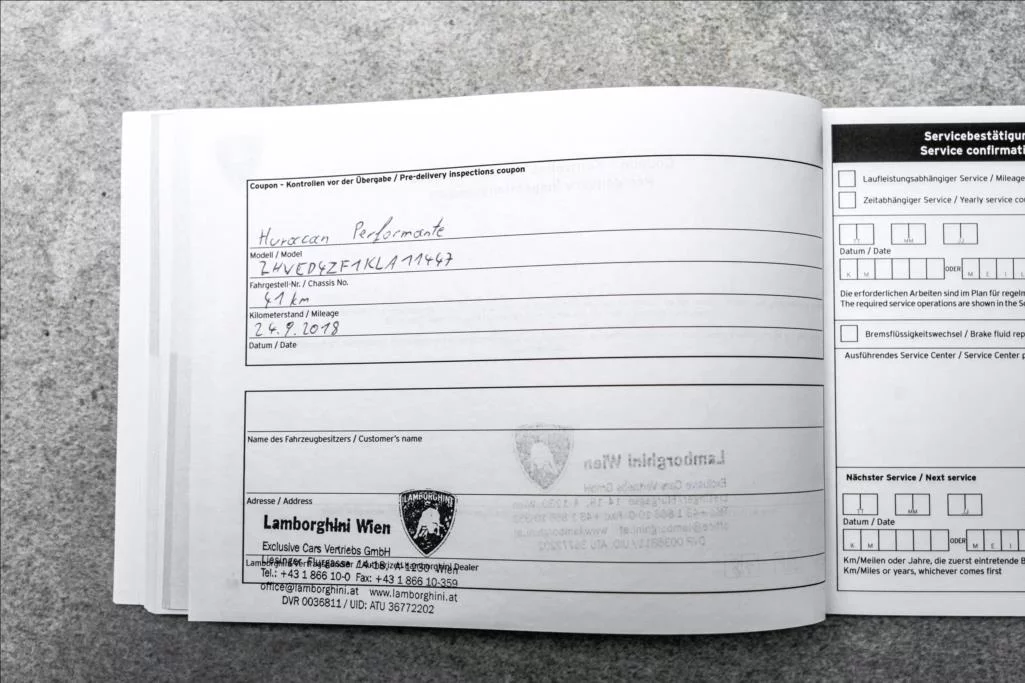 Coupon - Kontrollen vor der Übergabe / Pre-delivery inspections coupon
Huracan Performante
Modell / Model
ZHVED4ZF1KLA11447
Fahrgestell-Nr. / Chassis No.
41 km
Kilometerstand / Mileage
24.9.2018
Datum / Date
Name des Fahrzeugbesitzers / Customer's name
Adresse / Address
LAMBORGHINI
Lamborghini Wien
Exclusive Cars Vertriebs GmbH
Liesinger-Flurgasse 14-18, A-1230 Wien
Lamborghini Vertragshändler / Authorized Lamborghini Dealer
Tel.: +43 1 866 10-0 Fax: +43 1 866 10-359
office@lamborghini.at www.lamborghini.at
DVR 0036811 / UID: ATU 36772202
Servicebestätigun
Service confirmati
Laufleistungsabhängiger Service / Mileage
Zeitabhängiger Service / Yearly service co
TT MM JJ
Datum / Date
K M ODER M E I
Die erforderlichen Arbeiten sind im Plan für regeln
The required service operations are shown in the S
Bremsflüssigkeitswechsel / Brake fluid rep
Ausführendes Service Center / Service Center p
Nächster Service / Next service
TT MM JJ
Datum / Date
K M ODER M E I
Km/Meilen oder Jahre, die zuerst eintretende B
Km/Miles or years, whichever comes first